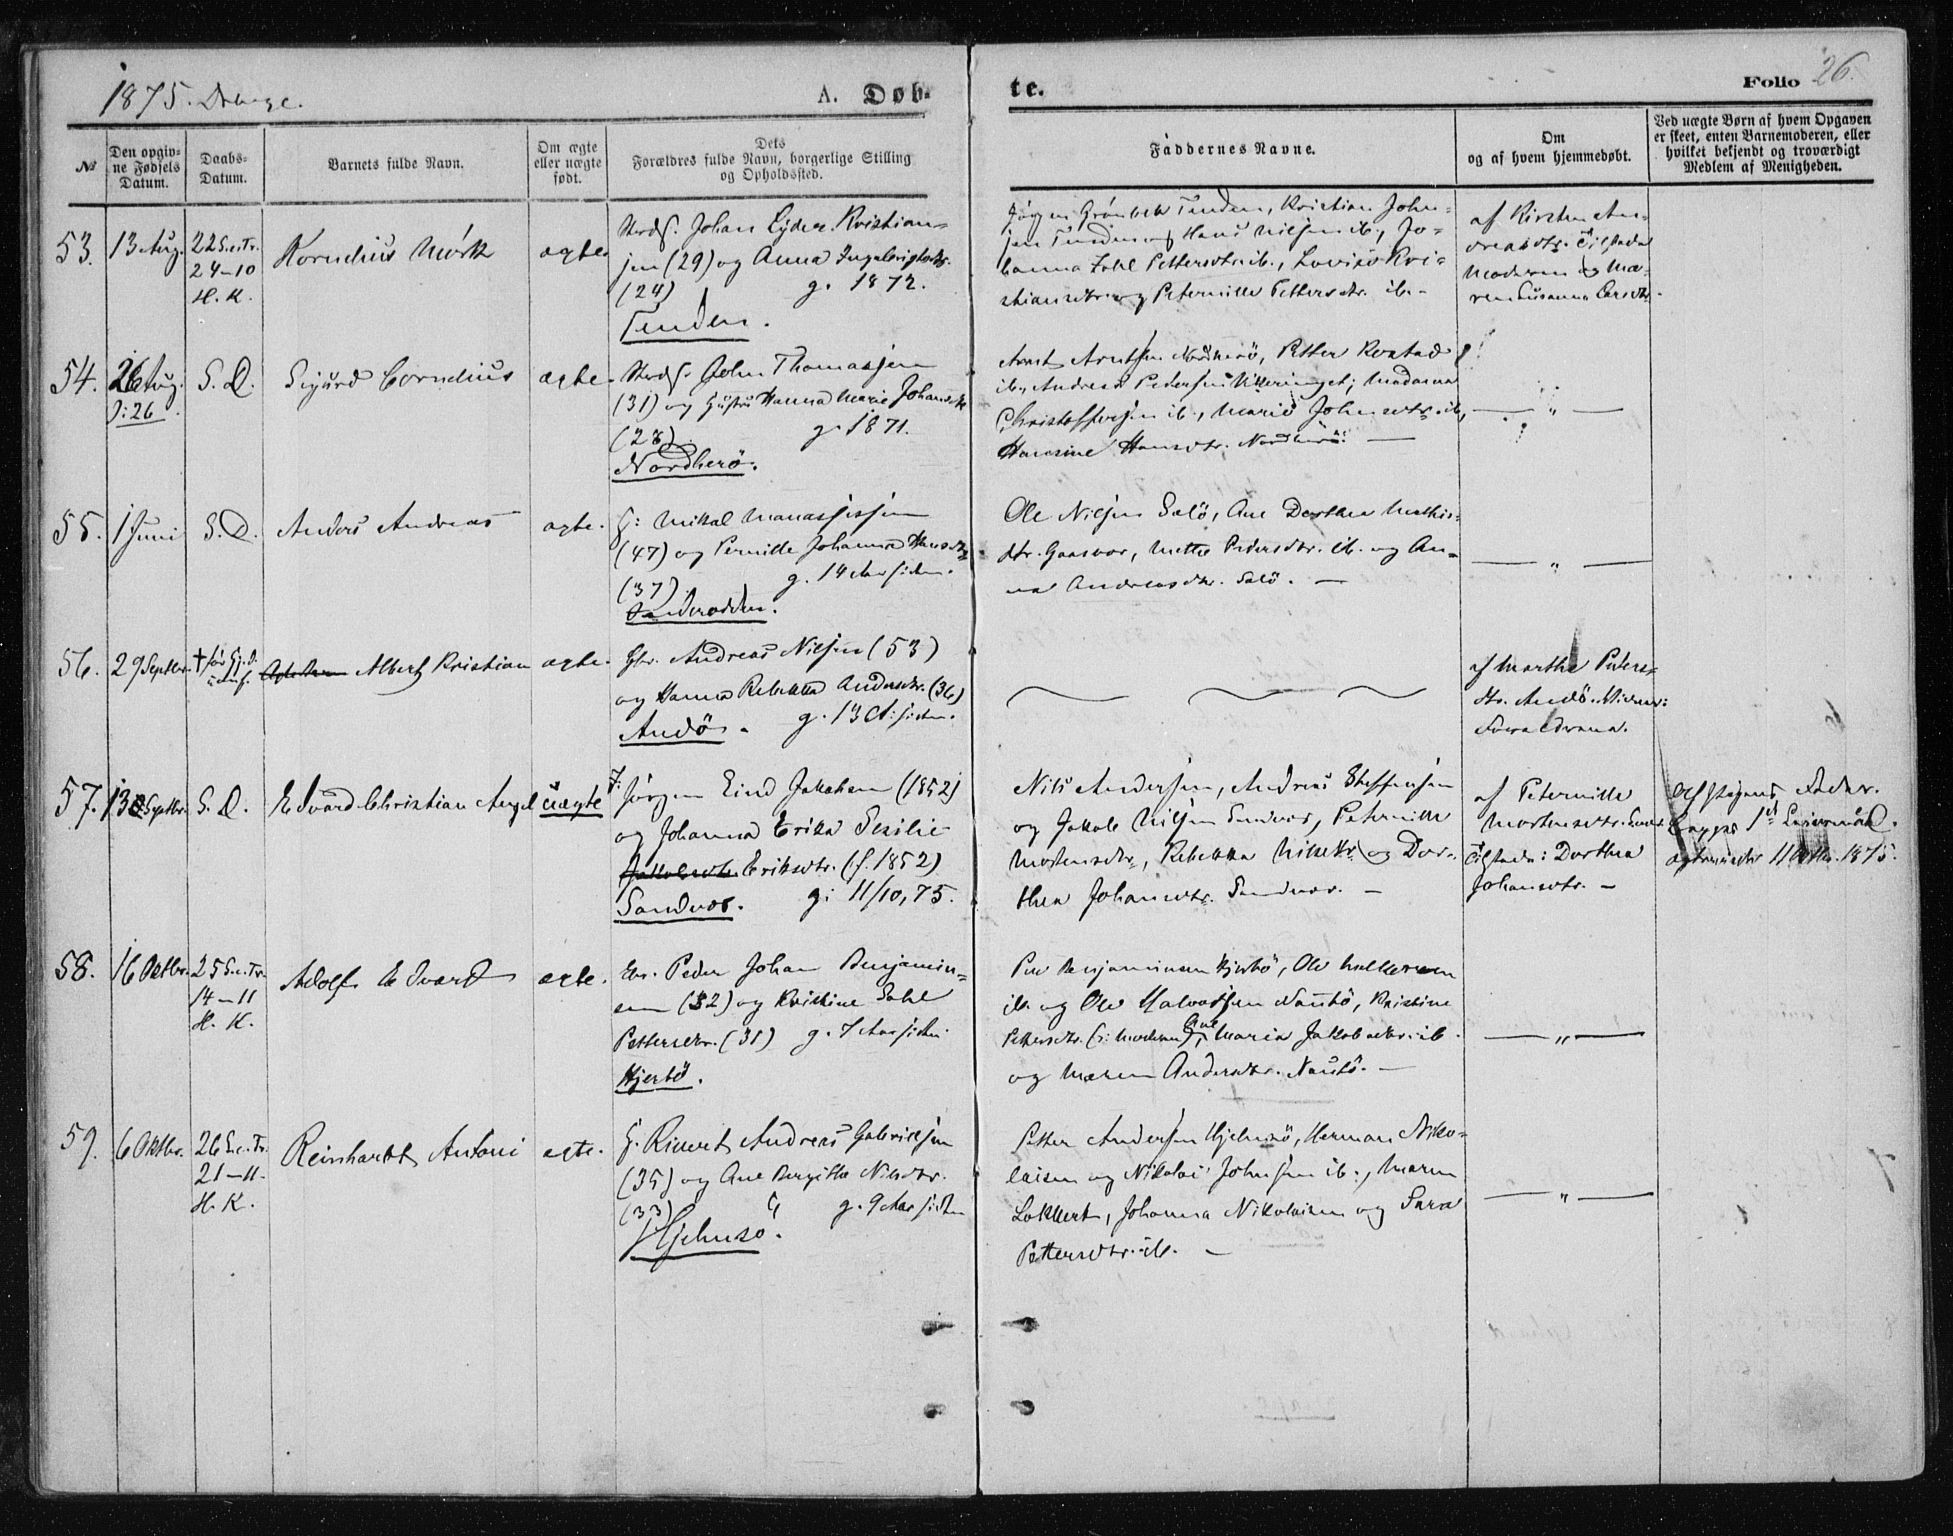 1875. Drenge.
A. Døbte.
Folio 26.
№
Den opgivne Fødsels Datum.
Daabs-Datum.
Barnets fulde Navn.
Om ægte eller uægte født.
Dets Forældres fulde Navn, borgerlige Stilling og Opholdssted.
Faddernes Navne.
Om og af hvem hjemmedøbt.
Ved uægte Børn af hvem Opgaven er skeet, enten Barnemoderen, eller hvilket bekjendt og troværdigt Medlem af Menigheden.
53. 13 Aug. 22 S.e.Tr. Kornelius Mörk ægte
24-10
H. K.
Johan Eyder Kristian-
sen (29) og Anna
(24) g. 1872.
Tenden.
Jörgen Grönbek Tenden, Kristian John-
sen Tenden og Hans Nilsen ib., Jo-
hanna Zahl Pettersdtr. ib., Lovise Kri-
stiansdtr. og Peternille Pettersdtr. ib.
af Kirsten An-
dreasdtr. Tilstede
Moderen og Ma-
ren Susanna Larsdtr.
54. 26 Aug. S. D. Sigurd Cornelius ægte.
ɔ: 26
John Thomassen
(31) og Hanna Marie Johansdtr.
(28) g. 1871.
Nordherö.
Arnt Arntsen Nordherö, Petter
ib., Andreas Pedersen; Madama
Christoffersen ib., Marie Johnsdtr. ib,
Hansine Hansdtr. Nordherö.
— " —
55. 1 Juni S. D. Anders Andreas ægte.
G: Mikal Manassissen
(47) og Pernille Johanna Hansdtr.
(37) g. 14 Aar siden.
Sanderodden.
Ole Nilsen Salö, Ane Dorthea Mathis-
dtr. Gaasvær, Mette Pedersdtr. ib. og An-
na Andreasdtr. Salö. —
— " —
56. 29 Septbr. † før Albert Kristian ægte.
Gbr. Andreas Nilsen (53)
og Hanna Rebekka Andersdtr. (36)
Andö. g. 13 A. siden.
af Marthe Peders-
dtr. Andö. Vidner:
Forældrene.
57. 13 Septbr. S. D. Edvard Christian Angel uægte
F: Jörgen Eind Jakobsen (1852)
og Johanna Erika Sesilie
Jakobsdtr. Eriksdtr. (f. 1852)
Sandvær. g: 11/10, 75.
Nils Andersen, Andreas Steffensen
og Jakob Nilsen Sandvær, Peternille
Mortensdtr., Rebekka Nilsdtr. og Dor-
thea Johansdtr. Sandvær. —
af Peternille
Mortensdtr. Sandv.
Tilstede: Dorthea
Johansdtr. —
Fader.
Begges 1ste Leiermaal.
11 Oktbr. 1875.
58. 16 Oktbr. 25 S.e.Tr. Adolf Edvard ægte.
14-11
H. K.
Peder Johan Benjamin-
sen (32) og Kristine Zahl
Pettersdtr. (31) g. 7 Aar siden
Hjertö.
Per Benjaminsen Hjertö, Ole
ib. og Ole Halvorsen Nautö, Kristine
Pettersdtr. (ɔ: Moderen), Ane Maria Jakobsdtr. ib.
og Maren Andersdtr. Nautö. —
— " —
59. 6 Oktbr. 26 S.e.Tr. Reinhardt Antoni ægte.
21-11.
H. K.
G. Rikert Andreas Gabrielsen
(35) og Ane Bergitte Nilsdtr.
(33) g. 9 Aar siden
Hjelmsö.
Petter Andersen Hjelmsö, Herman Niko-
laisen og Nikolai Johnsen ib., Maren
Lokkert, Johanna Nikolaisen og Sara
Pettersdtr. ib. —
— " —